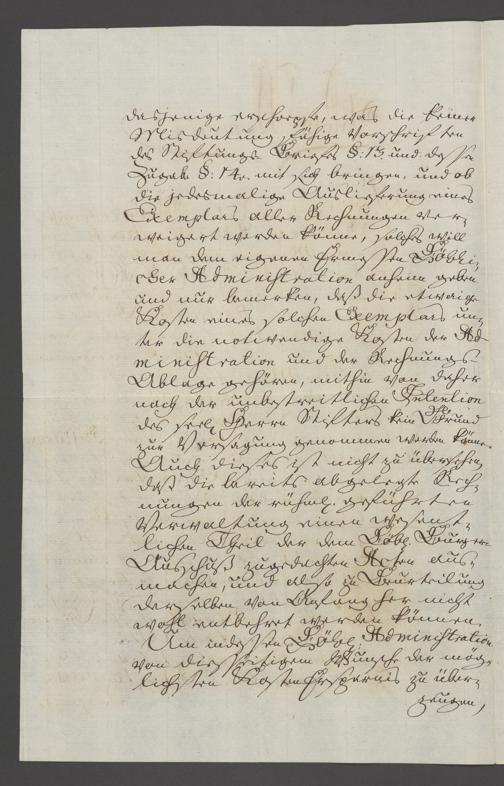 dasjenige erschöpfte, was die keiner
Misdeutung fähige Vorschriften
des Stiftungs Briefes §: 13. und dessen
Zugabe §: 14. mit sich bringen, und ob
die jedesmalige Auslieferung eines
Exemplars aller Rechnungen ver-
weigert werden könne, solches will
man dem eigenen Ermessen Löbli-
cher Administration anheim geben
und nur bemerken, daß die etwaige
Kosten eines solchen Exemplars un-
ter die notwendige Kosten der Ad-
ministration und der Rechnungs
Ablage gehören, mithin von daher
nach der unbestreitlichen Intention
des seel. Herrn Stifters kein Grund
zur Versagung genommen werden könne.
Auch dieses ist nicht zu übersehen,
daß die bereits abgelegte Rech-
nungen der rühml. geführten
Verwaltung einen wesent-
lichen Theil der dem Löbl. Bürger
Ausschuß zugedachten Acten aus-
machen, und also zu Beurteilung
derselben von Anfang her nicht
wohl entbehret werden können.
Um indessen Löbl. Administration
von diesseitigem Wunsche der mög-
lichsten Kosten Ersparnis zu über-
zeugen,